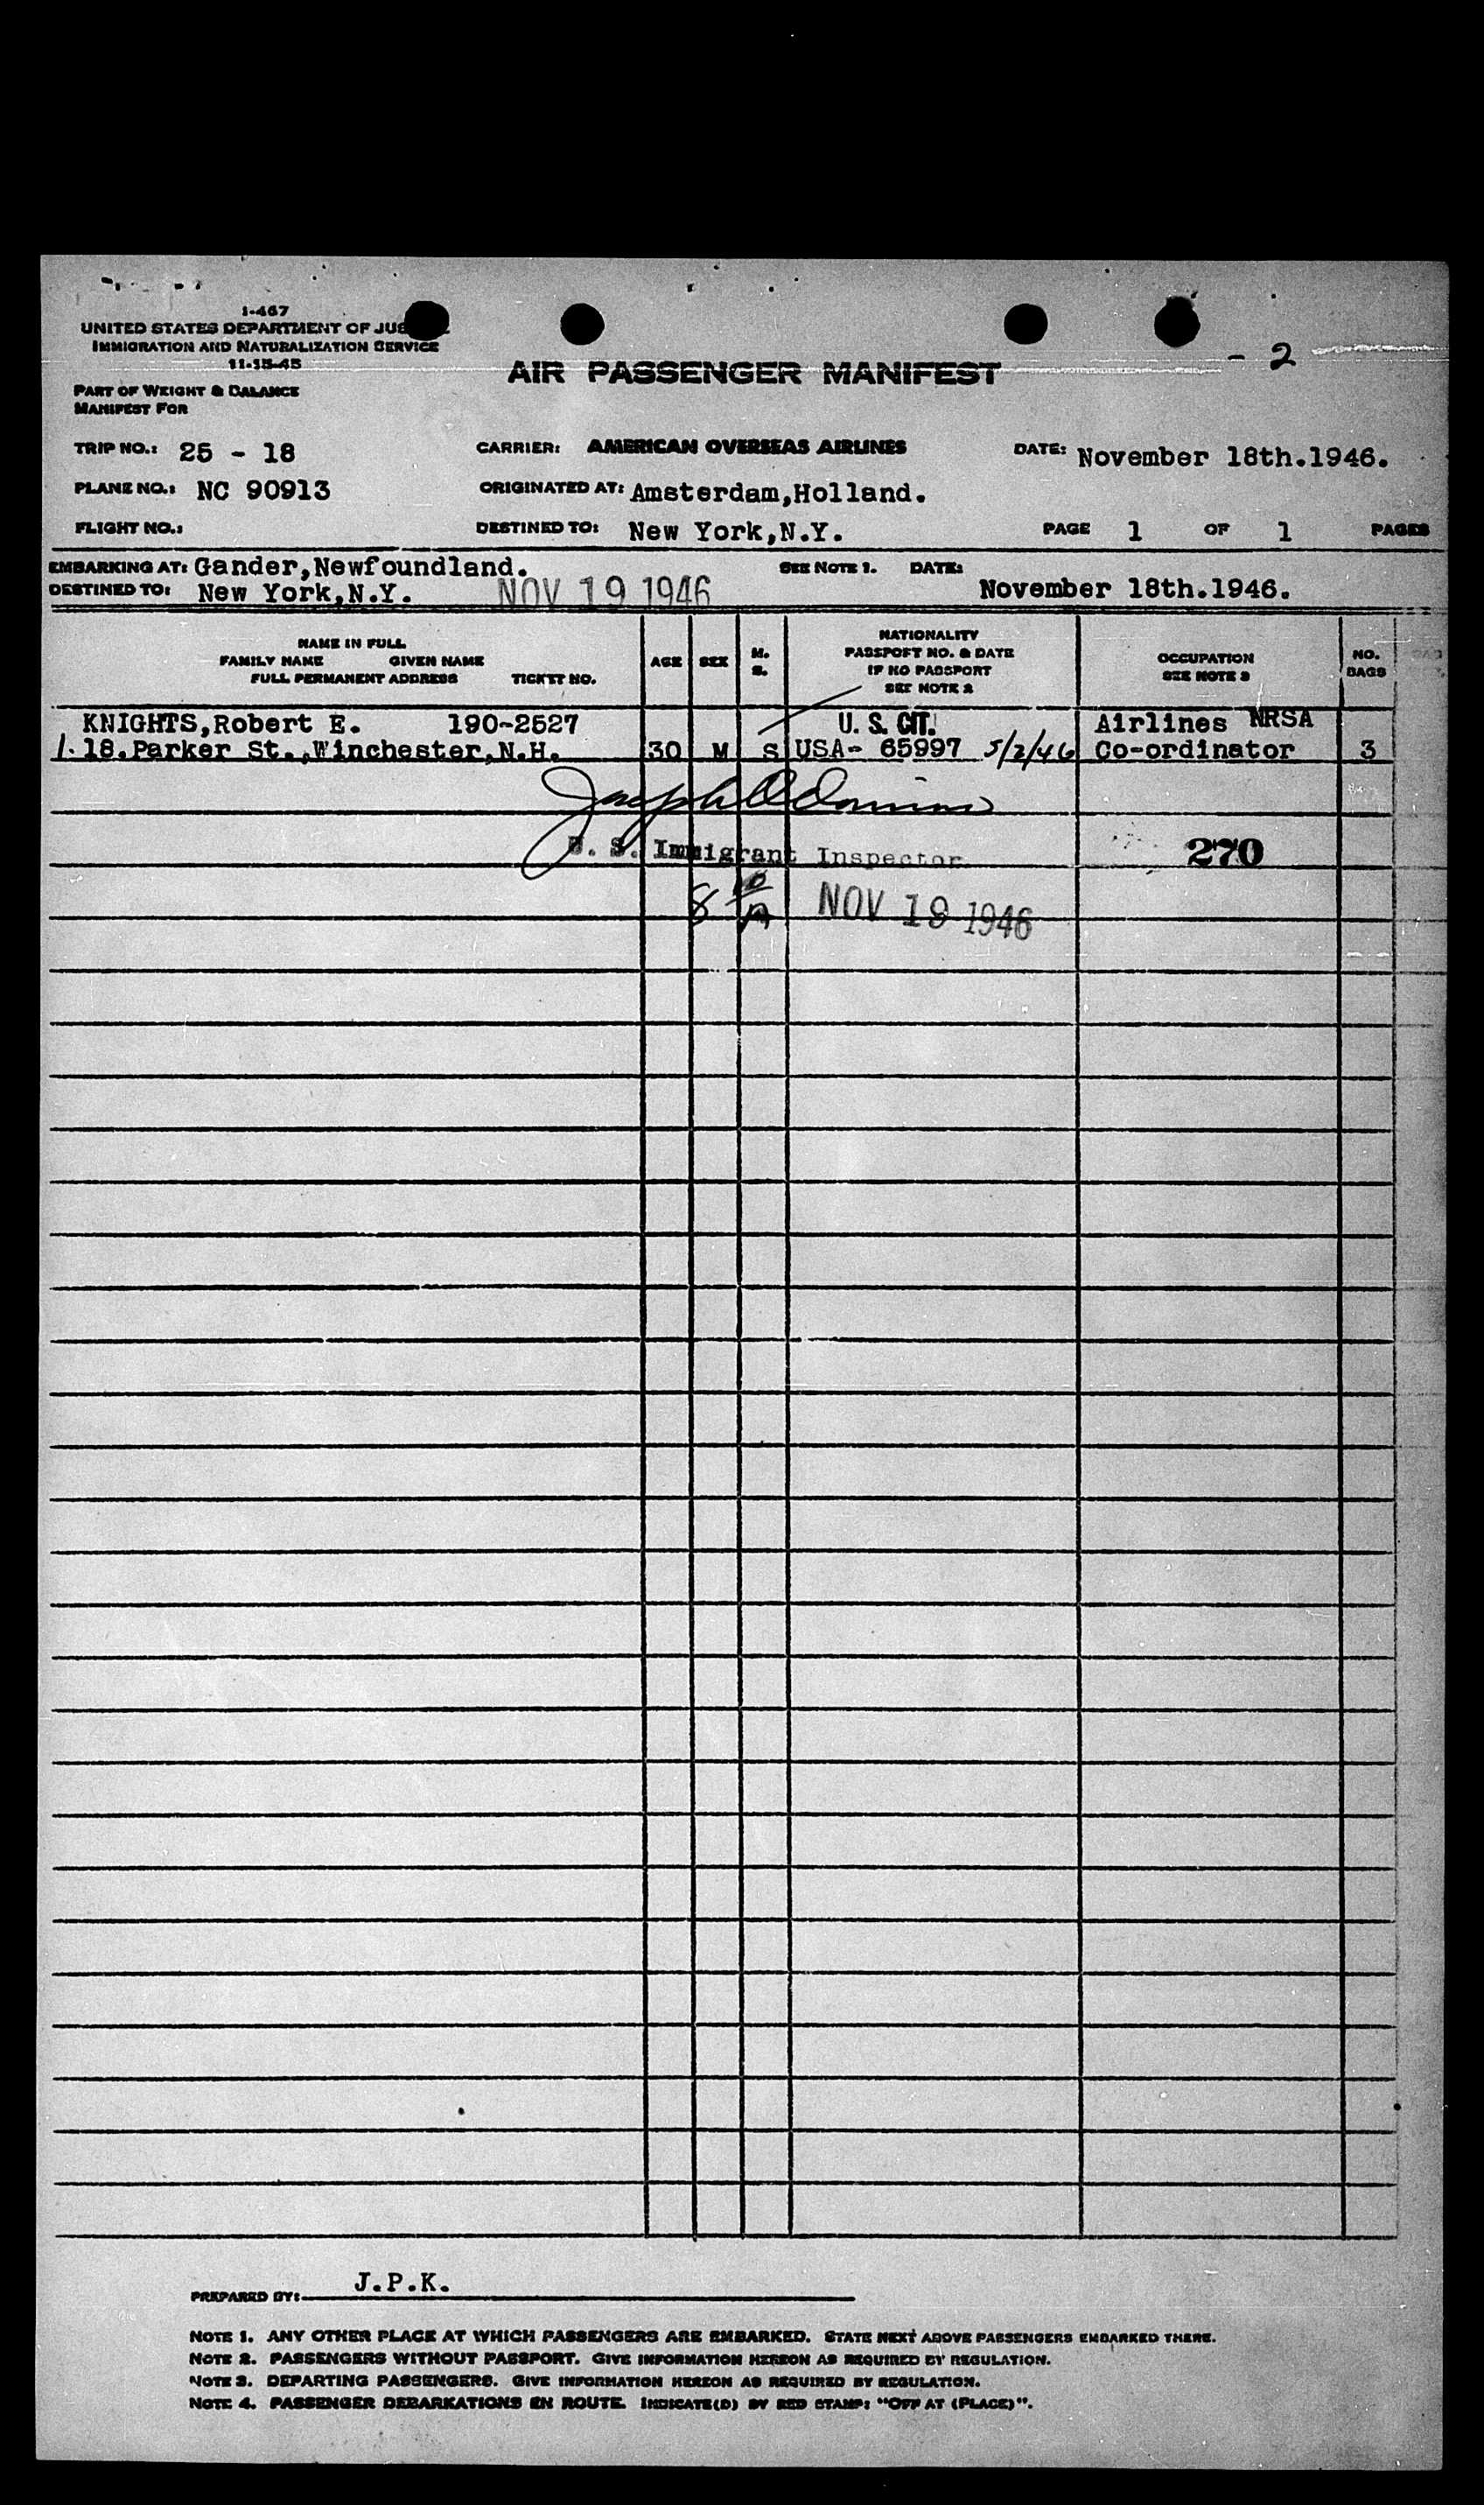 - 2
I-467
UNITED STATES DEPARTMENT OF JUS
IMMIGRATION AND NATURALIZATION SERVICE
11-15-45
AIR PASSENGER MANIFEST
PART OF WEIGHT & BALANCE
MANIFEST FOR
TRIP NO.: 25 - 18 CARRIER: AMERICAN OVERSEAS AIRLINES DATE: November 18th.1946.
PLANE NO.: NC 90913 ORIGINATED AT: Amsterdam,Holland.
FLIGHT NO.: DESTINED TO: New York,N.Y. PAGE 1 OF 1 PAGES
EMBARKING AT: Gander,Newfoundland. SEE NOTE 1. DATE:
DESTINED TO: New York,N.Y. NOV 19 1946 November 18th.1946.
NAME IN FULL
FAMILY NAME GIVEN NAME
FULL PERMANENT ADDRESS TICKET NO.
AGE
SEX
M.
S.
NATIONALITY
PASSPORT NO. & DATE
IF NO PASSPORT
SEE NOTE 2
OCCUPATION
SEE NOTE 3
NO.
BAGS
KNIGHTS,Robert E. 190-2527 U. S. CIT. Airlines NRSA
1. 18.Parker St.,Winchester,N.H. 30 M S USA- 65997 5/2/46 Co-ordinator 3
U. S. Immigrant Inspector 270
8 10/A NOV 19 1946
PREPARED BY: J.P.K.
NOTE 1. ANY OTHER PLACE AT WHICH PASSENGERS ARE EMBARKED. STATE NEXT ABOVE PASSENGERS EMBARKED THERE.
NOTE 2. PASSENGERS WITHOUT PASSPORT. GIVE INFORMATION HEREON AS REQUIRED BY REGULATION.
NOTE 3. DEPARTING PASSENGERS. GIVE INFORMATION HEREON AS REQUIRED BY REGULATION.
NOTE 4. PASSENGER DEBARKATIONS EN ROUTE. INDICATE(D) BY RED STAMP: "OFF AT (PLACE)".